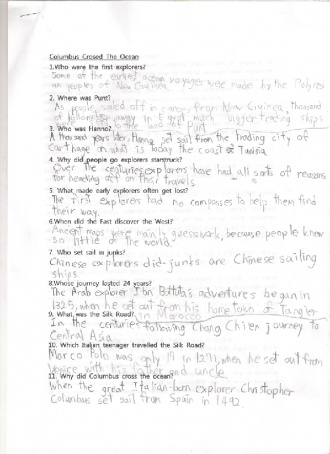 Columbus Crosed The Ocean
1.Who were the first explorers?
Some of the earliest ocean voyages were made by the Polynes
an peoples of New Guinea.
2. Where was Punt?
As people sailed off in canoes from New Guinea, thousand
of kilometers away in Egypt, much bigger trading ships
were to the land of Punt
3. Who was Hanno?
A thousand years later, Hanno, set sail from the trading city of
Carthage on what is today the coast of Tunisia.
4. Why did people go explorers starstruck?
Over the centuries explorers have had all sorts of reasons
for heading off on their travels.
5. What made early explorers often get lost?
The first explorers had no compasses to help them find
their way.
6.When did the East discover the West?
Ancent maps were mainly guesswork, because people knew
so little of the world.
7. Who set sail in junks?
Chinese explorers did-junks are Chinese sailing
ships.
8.Whose journey lasted 24 years?
The Arab explorer Ibn Battuta's adventures began in
1325, when he set out from his home town of Tangier
in Morocco
9. What was the Silk Road?
In the centuries following Chang Ch'ien journey to
Central Asia
10. Which Italian teenager travelled the Silk Road?
Marco Polo was only 17 in 1271, when he set out from
Venice with his father and uncle.
11. Why did Columbus cross the ocean?
When the great Italian-born explorer Christopher
Columbus set sail from Spain in 1492.